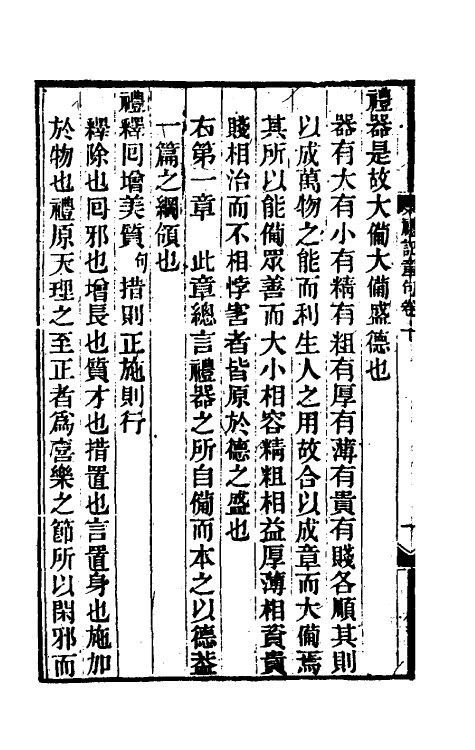 禮記章句卷十
禮器是故大備大備盛德也
器有大有小有精有粗有厚有薄有貴有賤各順其則
以成萬物之能而利生人之用故合以成章而大備焉
其所以能備眾善而大小相容精粗相益厚薄相資貴
賤相治而不相悖害者皆原於德之盛也
右第一章　此章總言禮器之所自備而本之以德益
一篇之綱領也
禮釋回增美質句措則正施則行
釋除也回邪也增長也質才也措置也言置身也施加
於物也禮原天理之至正者爲喜樂之節所以閑邪而